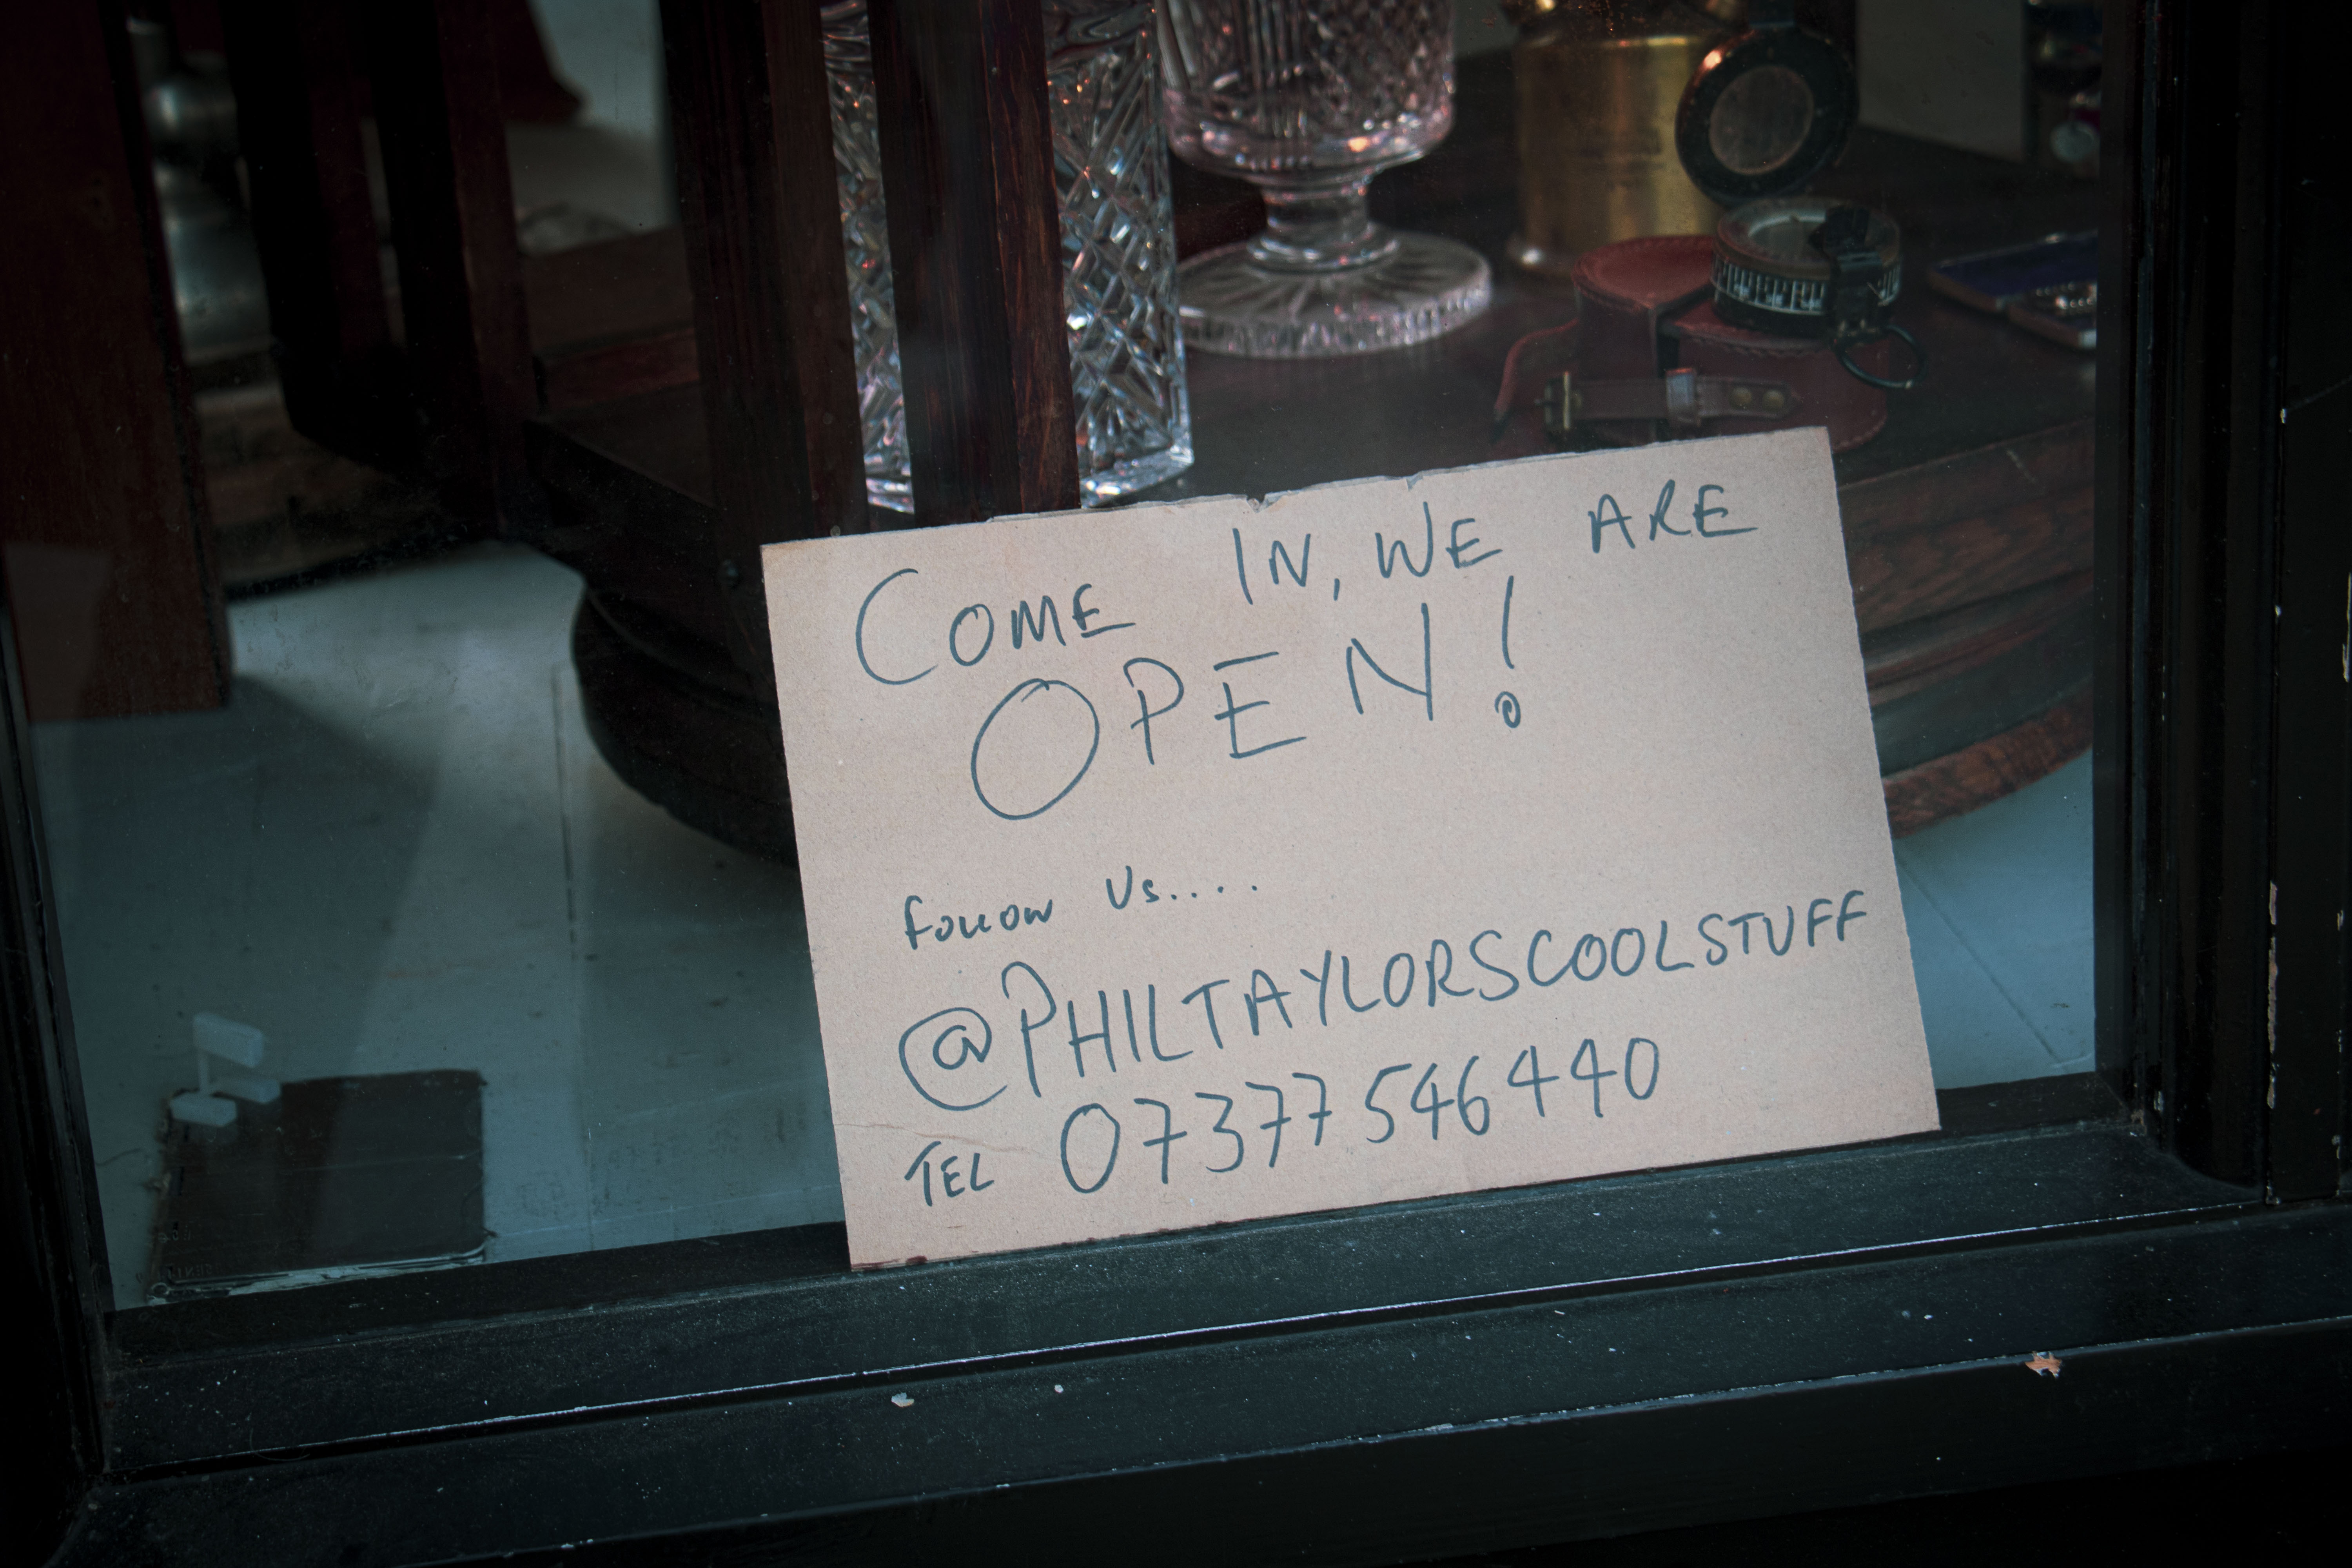 COME IN, WE ARE
OPEN!
Follow Us....
@PHILTAYLORSCOOLSTUFF
TEL 07377546440